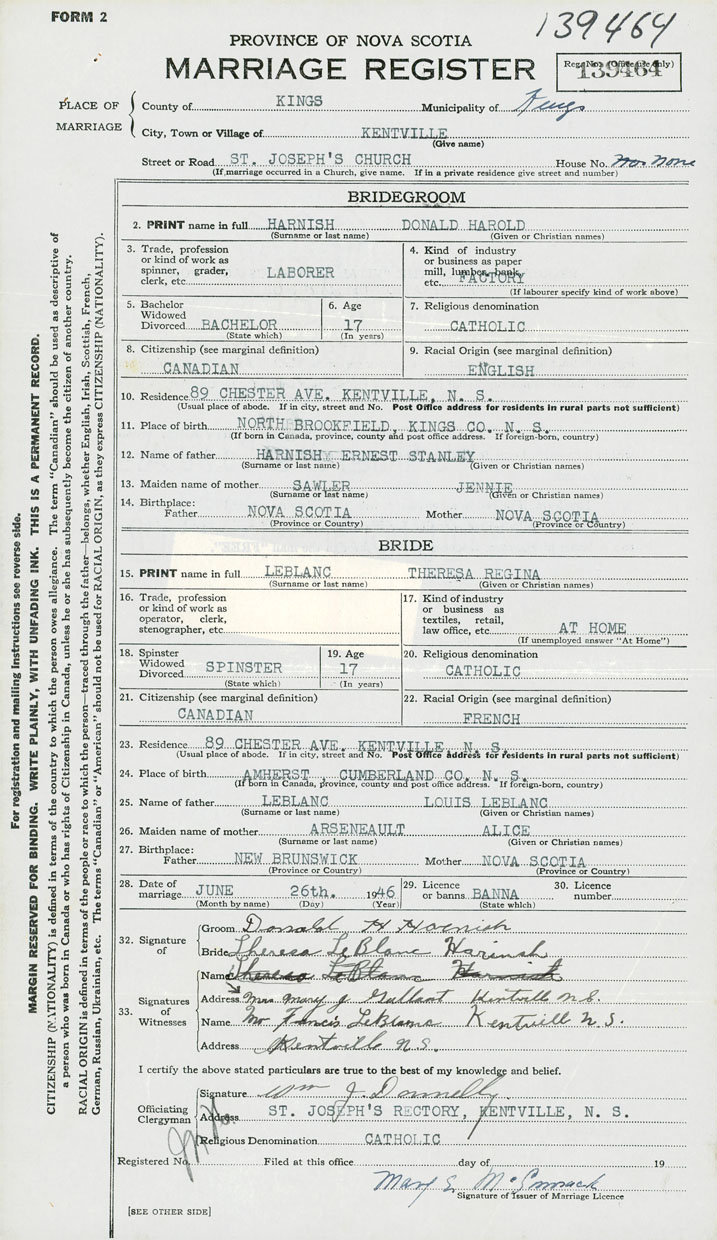 FORM 2
139464
PROVINCE OF NOVA SCOTIA
MARRIAGE REGISTER
Reg. No. (Office use only)
139464
PLACE OF MARRIAGE
County of KINGS Municipality of Kings
City, Town or Village of KENTVILLE
(Give name)
Street or Road ST. JOSEPH'S CHURCH House No. none
(If marriage occurred in a Church, give name. If in a private residence give street and number)
BRIDEGROOM
2. PRINT name in full HARNISH DONALD HAROLD
(Surname or last name) (Given or Christian names)
3. Trade, profession or kind of work as spinner, grader, clerk, etc. LABORER
4. Kind of industry or business as paper mill, lumber, bank, etc. FACTORY
(If labourer specify kind of work above)
5. Bachelor Widowed Divorced BACHELOR
(State which)
6. Age 17
(In years)
7. Religious denomination
CATHOLIC
8. Citizenship (see marginal definition)
CANADIAN
9. Racial Origin (see marginal definition)
ENGLISH
10. Residence 89 CHESTER AVE. KENTVILLE, N. S.
(Usual place of abode. If in city, street and No. Post Office address for residents in rural parts not sufficient)
11. Place of birth NORTH BROOKFIELD, KINGS CO. N. S.
(If born in Canada, province, county and post office address. If foreign-born, country)
12. Name of father HARNISH ERNEST STANLEY
(Surname or last name) (Given or Christian names)
13. Maiden name of mother SAWLER JENNIE
(Surname or last name) (Given or Christian names)
14. Birthplace:
Father NOVA SCOTIA Mother NOVA SCOTIA
(Province or Country) (Province or Country)
BRIDE
15. PRINT name in full LEBLANC THERESA REGINA
(Surname or last name) (Given or Christian names)
16. Trade, profession or kind of work as operator, clerk, stenographer, etc.
17. Kind of industry or business as textiles, retail, law office, etc. AT HOME
(If unemployed answer "At Home")
18. Spinster Widowed Divorced SPINSTER
(State which)
19. Age
17
(In years)
20. Religious denomination
CATHOLIC
21. Citizenship (see marginal definition)
CANADIAN
22. Racial Origin (see marginal definition)
FRENCH
23. Residence 89 CHESTER AVE. KENTVILLE, N. S.
(Usual place of abode. If in city, street and No. Post Office address for residents in rural parts not sufficient)
24. Place of birth AMHERST, CUMBERLAND CO. N. S.
(If born in Canada, province, county and post office address. If foreign-born, country)
25. Name of father LEBLANC LOUIS LEBLANC
(Surname or last name) (Given or Christian names)
26. Maiden name of mother ARSENEAULT ALICE
(Surname or last name) (Given or Christian names)
27. Birthplace:
Father NEW BRUNSWICK Mother NOVA SCOTIA
(Province or Country) (Province or Country)
28. Date of marriage JUNE 26th. 1946
(Month by name) (Day) (Year)
29. Licence or banns BANNA
(State which)
30. Licence number
32. Signature of
Groom Donald H Harnish
Bride Theresa LeBlanc Harinsh
33. Signatures of Witnesses
Name Theresa LeBlanc Harnish
Address Mrs. Mary J Gallant Kentville N.S.
Name Mr Francis LeBlanc Kentvill N.S.
Address Kentville N.S.
I certify the above stated particulars are true to the best of my knowledge and belief.
Officiating Clergyman
Signature Wm J. Donnelly
Address ST. JOSEPH'S RECTORY, KENTVILLE, N. S.
Religious Denomination CATHOLIC
Registered No. Filed at this office day of 19
Mary E. McCormack
Signature of Issuer of Marriage Licence
[SEE OTHER SIDE]
For registration and mailing instructions see reverse side.
MARGIN RESERVED FOR BINDING. WRITE PLAINLY, WITH UNFADING INK. THIS IS A PERMANENT RECORD.
CITIZENSHIP (NATIONALITY) is defined in terms of the country to which the person owes allegiance. The term "Canadian" should be used as descriptive of
a person who was born in Canada or who has rights of Citizenship in Canada, unless he or she has subsequently become the citizen of another country.
RACIAL ORIGIN is defined in terms of the people or race to which the person—traced through the father—belongs, whether English, Irish, Scottish, French,
German, Russian, Ukrainian, etc. The terms "Canadian" or "American" should not be used for RACIAL ORIGIN, as they express CITIZENSHIP (NATIONALITY).